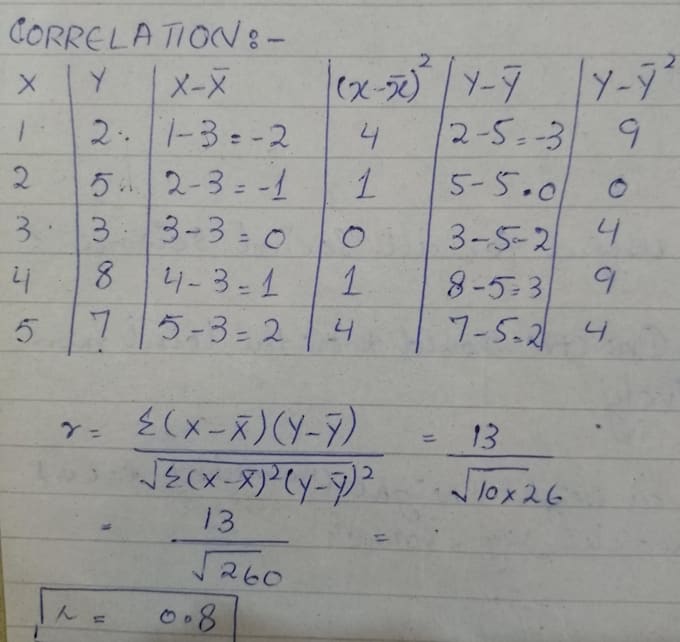 CORRELATION:-
X Y X-X̄ (x-x̄)² Y-Ȳ Y-Ȳ²
1 2 1-3=-2 4 2-5=-3 9
2 5 2-3=-1 1 5-5=0 0
3 3 3-3=0 0 3-5-2 4
4 8 4-3=1 1 8-5=3 9
5 7 5-3=2 4 7-5=2 4
r= Σ(X-X̄)(Y-Ȳ) / √Σ(X-X̄)²(Y-Ȳ)² = 13 / √10×26
= 13 / √260 =
r = 0.8